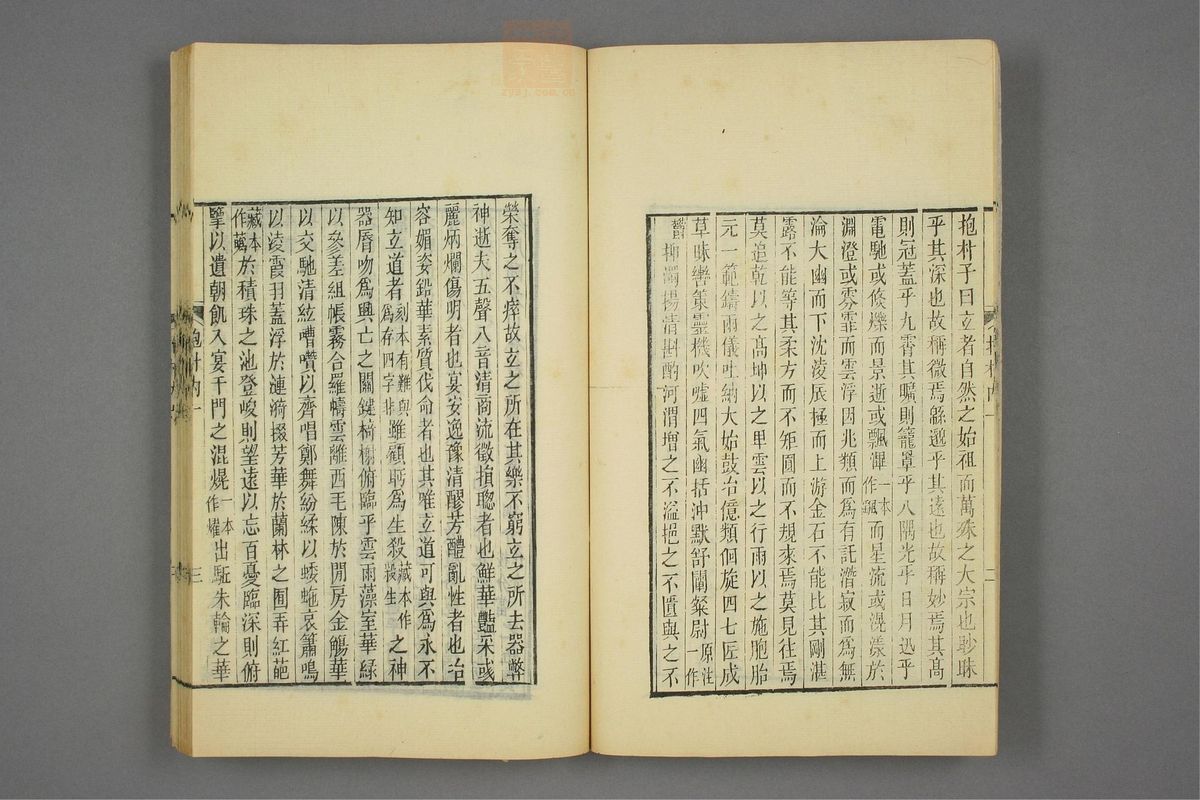 抱朴子曰立者自然之始祖而萬殊之大宗也眇昧
乎其深也故稱微焉緜邈乎其遠也故稱妙焉其高
則冠蓋乎九霄其曠則籠罩乎八隅光乎日月迅乎
電馳或倏爍而景逝或飄滭一本作颯而星流或滉漾於
淵澄或雰霏而雲浮因兆類而爲有託潛寂而爲無
淪大幽而下沈凌辰極而上游金石不能比其剛湛
露不能等其柔方而不矩圓而不規來焉莫見往焉
莫追乾以之高坤以之卑雲以之行雨以之施胞胎
元一範鑄兩儀吐納大始鼓冶億類佪旋四七匠成
草昧轡策靈機吹噓四氣幽括沖默舒闡粲尉原注一作
鬱抑濁揚清斟酌河渭增之不溢挹之不匱與之不
榮奪之不瘁故立之所在其樂不窮立之所去器弊
神逝夫五聲八音清商流徵損聰者也鮮華豔采或
麗炳爛傷明者也宴安逸豫清醪芳醴亂性者也冶
容媚姿鉛華素質伐命者也其唯立道可與爲永不
知立道者刻本有難與爲存四字非雖顧眄爲生殺藏本作殺生之神
器脣吻爲興亡之關鍵㨂榭俯臨乎雲雨藻室華綠
以參差組帳霧合羅幬雲離西毛陳於閒房金觴華
以交馳清絃嘈囋以齊唱鄭舞紛綵以蜲蛇哀簫鳴
以凌霞羽蓋浮於漣漪掇芳華於蘭林之囿弄紅葩
藏本作蘤於積珠之池登峻則望遠以忘百憂臨深則俯
擥以遺朝飢入宴千門之混熀一本作燿出駈朱輪之華
抱朴内一
三
二